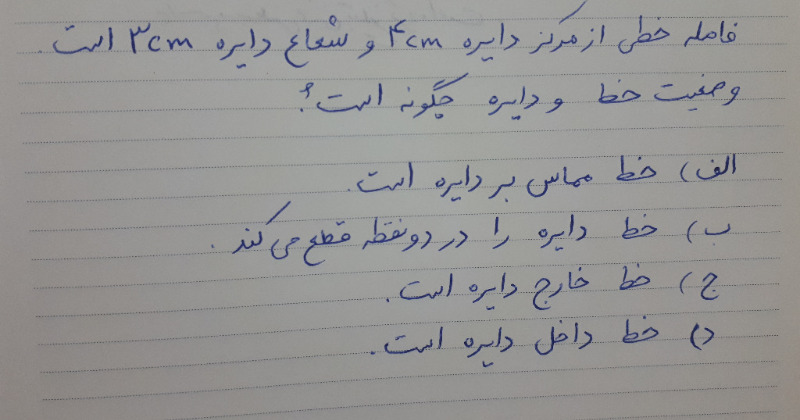 فاصله خطی از مرکز دایره ۴cm و شعاع دایره ۳cm است.
وضعیت خط و دایره چگونه است؟
الف) خط مماس بر دایره است.
ب) خط دایره را در دو نقطه قطع می کند.
ج) خط خارج دایره است.
د) خط داخل دایره است.